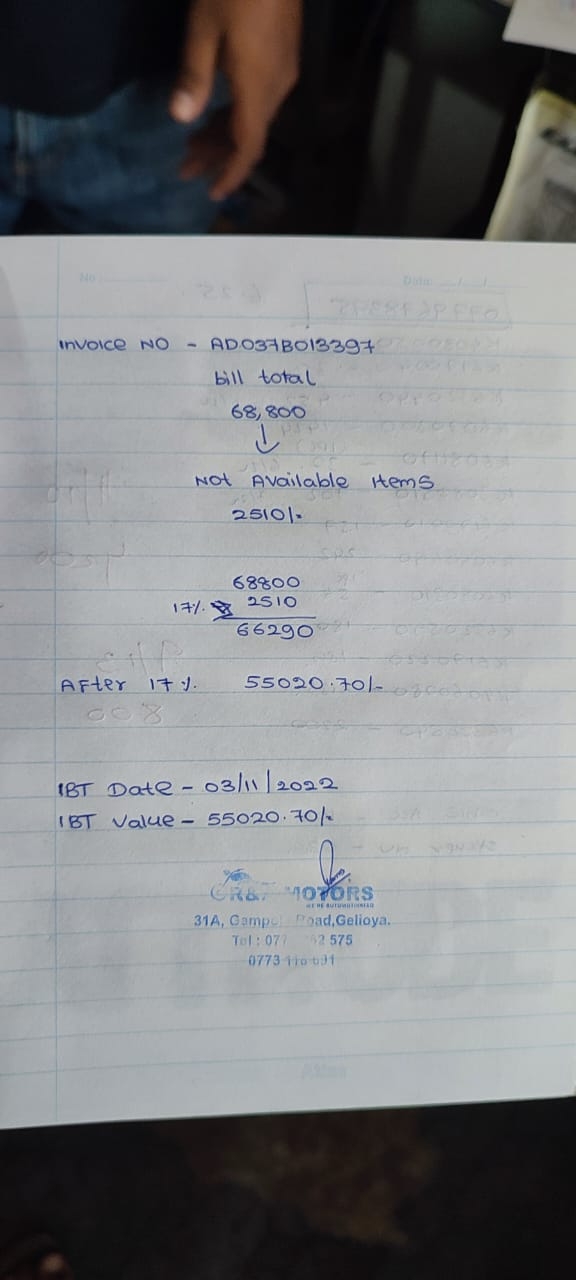 No
Date
Invoice NO - AD037B013397
bill total
68,800
↓
Not Available Items
2510/-
68800
17% 2510
66290
After 17% 55020.70/-
IBT Date - 03/11/2022
IBT Value - 55020.70/-
MOTORS
31A, Road,Gelioya.
Tel : 077 62 575
0773